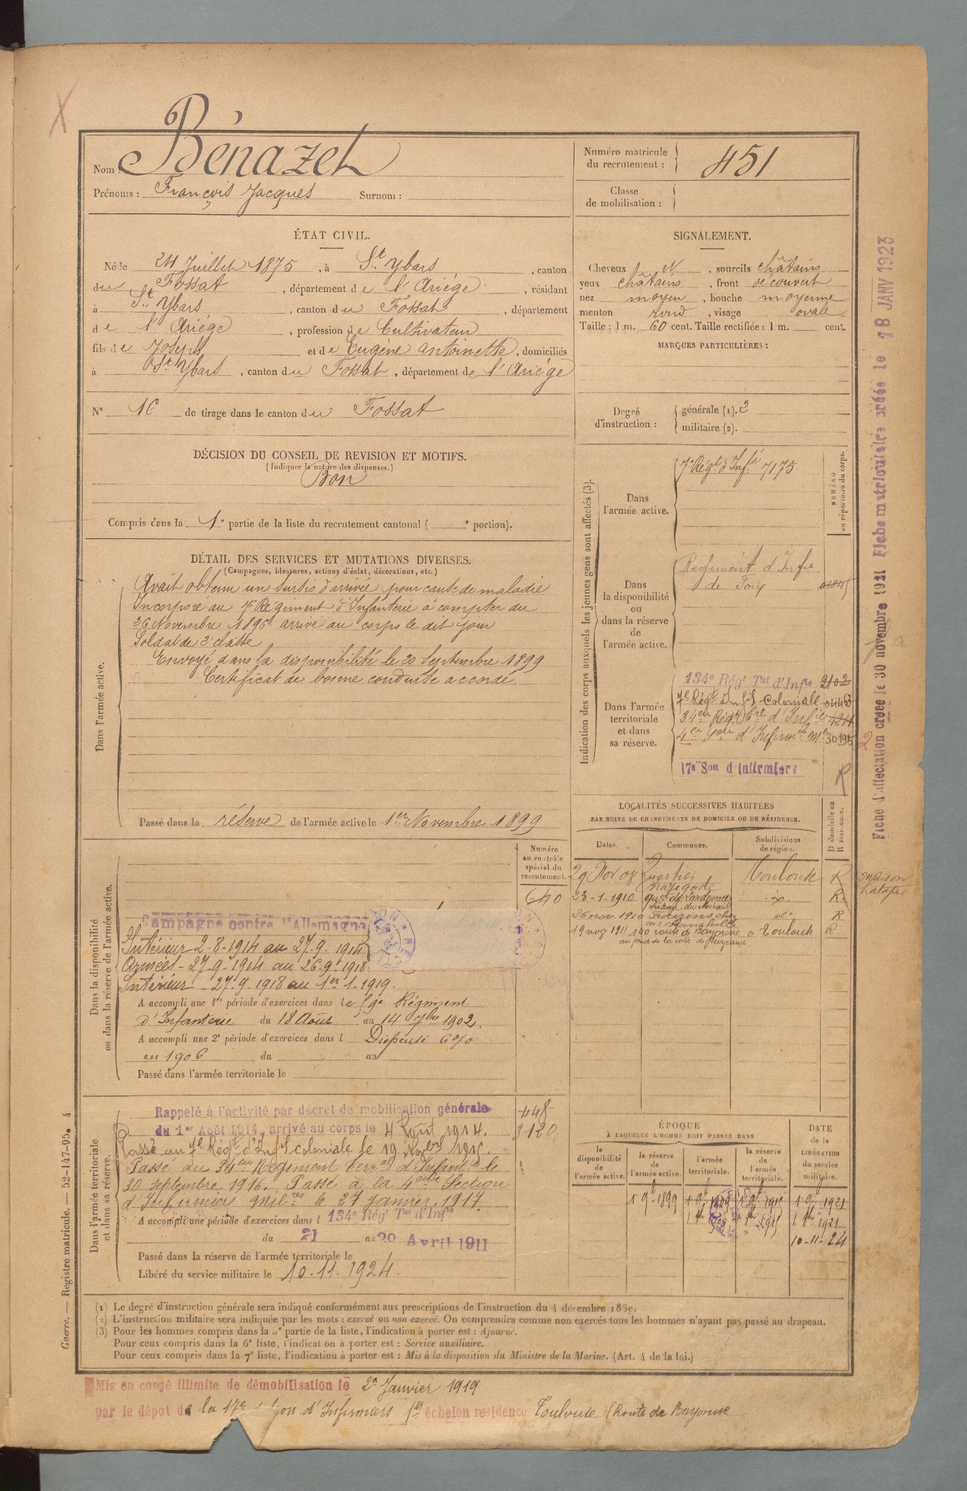 Nom Bénazet
Prénoms : François Jacques Surnom :
Numéro matricule du recrutement : 451
Classe de mobilisation :
ÉTAT CIVIL.
Né le 24 Juillet 1875, à St Ybars, canton
du Fossat, département de l'Ariège, résidant
à St Ybars, canton du Fossat, département
de l'Ariège, profession de Cultivateur
fils de Joseph et de Eugène Antoinette, domiciliés
à St Ybars, canton du Fossat, département de l'Ariège
N° 10 de tirage dans le canton du Fossat
SIGNALEMENT.
Cheveux , sourcils châtains
yeux châtains, front découvert
nez moyen, bouche moyenne
menton rond, visage ovale
Taille : 1 m. 60 cent. Taille rectifiée : 1 m. cent.
MARQUES PARTICULIÈRES :
Degré d'instruction : générale (1). 2
militaire (2).
DÉCISION DU CONSEIL DE REVISION ET MOTIFS.
(Indiquer la nature des dispenses.)
Bon
Compris dans la 1e partie de la liste du recrutement cantonal ( e portion).
DÉTAIL DES SERVICES ET MUTATIONS DIVERSES.
(Campagnes, blessures, actions d'éclat, décorations, etc.)
Dans l'armée active.
Avait obtenu un sursis d'arrivée pour cause de maladie
Incorporé au 7e Régiment d'Infanterie à compter du
26 Novembre 1896 arrivé au corps le dit jour
Soldat de 2e classe
Envoyé dans la disponibilité le 20 Septembre 1899
Certificat de bonne conduite accordé
Passé dans la réserve de l'armée active le 1er Novembre 1899
Indication des corps auxquels les jeunes gens sont affectés (3).
NUMÉRO au répertoire du corps.
Dans l'armée active.
7e Régt d'Infie 7175
Dans la disponibilité ou dans la réserve de l'armée active.
Régiment d'Infie
de Foix
Dans l'armée territoriale et dans sa réserve.
134e Régt Tal d'Infie 2102
7e Régt Inf. Coloniale
34e Régt d'Infie
d'Infirm
17e Son d'infirmiers
R
LOCALITÉS SUCCESSIVES HABITÉES
PAR SUITE DE CHANGEMENTS DE DOMICILE OU DE RÉSIDENCE.
Dates. Communes. Subdivisions de région. D domicile ou R résidence.
29 Nov 08 Toulouse R
23-1-1910 R
25 nov. 1910 do R
19 nov 1911 140 route de Bayonne Toulouse R
Numéro au contrôle spécial du recrutement.
640
Dans la disponibilité ou dans la réserve de l'armée active.
Campagne contre l'Allemagne
Intérieur 2-8-1914 au 27-9-1914
Armées - 27-9-1914 au 26-9-1918
Intérieur - 27-9-1918 au 1er-1-1919.
A accompli une 1re période d'exercices dans le Régiment
d'Infanterie du 18 Août au 14 7bre 1902.
A accompli une 2e période d'exercices dans l Dispensé 6%
en 1906 du au
Passé dans l'armée territoriale le
Dans l'armée territoriale et dans sa réserve.
Rappelé à l'activité par décret de mobilisation générale
du 1er Août 1914, arrivé au corps le 4 Août 1914.
Passé au 7e Régt d'Infie coloniale le 19 Novbre 1915.
Passé au 34eme Régiment Terral d'Infanterie le
30 Septembre 1916. Passé à la Section
d'Infirmiers milres le 27 janvier 1917
A accompli une période d'exercices dans l 134e Régt Tal d'Infie
du 21 au 29 Avril 1911
Passé dans la réserve de l'armée territoriale le
Libéré du service militaire le 10-11-1924.
ÉPOQUE
À LAQUELLE L'HOMME DOIT PASSER DANS
la disponibilité de l'armée active. la réserve de l'armée active. l'armée territoriale. la réserve de l'armée territoriale.
DATE de la LIBÉRATION du service militaire.
10-11-24
(1) Le degré d'instruction générale sera indiqué conformément aux prescriptions de l'instruction du 4 décembre 1889.
(2) L'instruction militaire sera indiquée par les mots : exercé ou non exercé. On comprendra comme non exercés tous les hommes n'ayant pas passé au drapeau.
(3) Pour les hommes compris dans la 5e partie de la liste, l'indication à porter est : Ajourné.
Pour ceux compris dans la 6e liste, l'indication à porter est : Service auxiliaire.
Pour ceux compris dans la 7e liste, l'indication à porter est : Mis à la disposition du Ministre de la Marine. (Art. 4 de la loi.)
Mis en congé illimité de démobilisation le 2 Janvier 1919
par le dépôt de la 17e d'Infirmiers échelon résidence Toulouse (Route de Bayonne
Guerre. — Registre matricule. — 52-147-95. 4
Fiche d'affectation créée le 30 novembre 1921 Fiche matriculaire créée le 18 JANV 1923